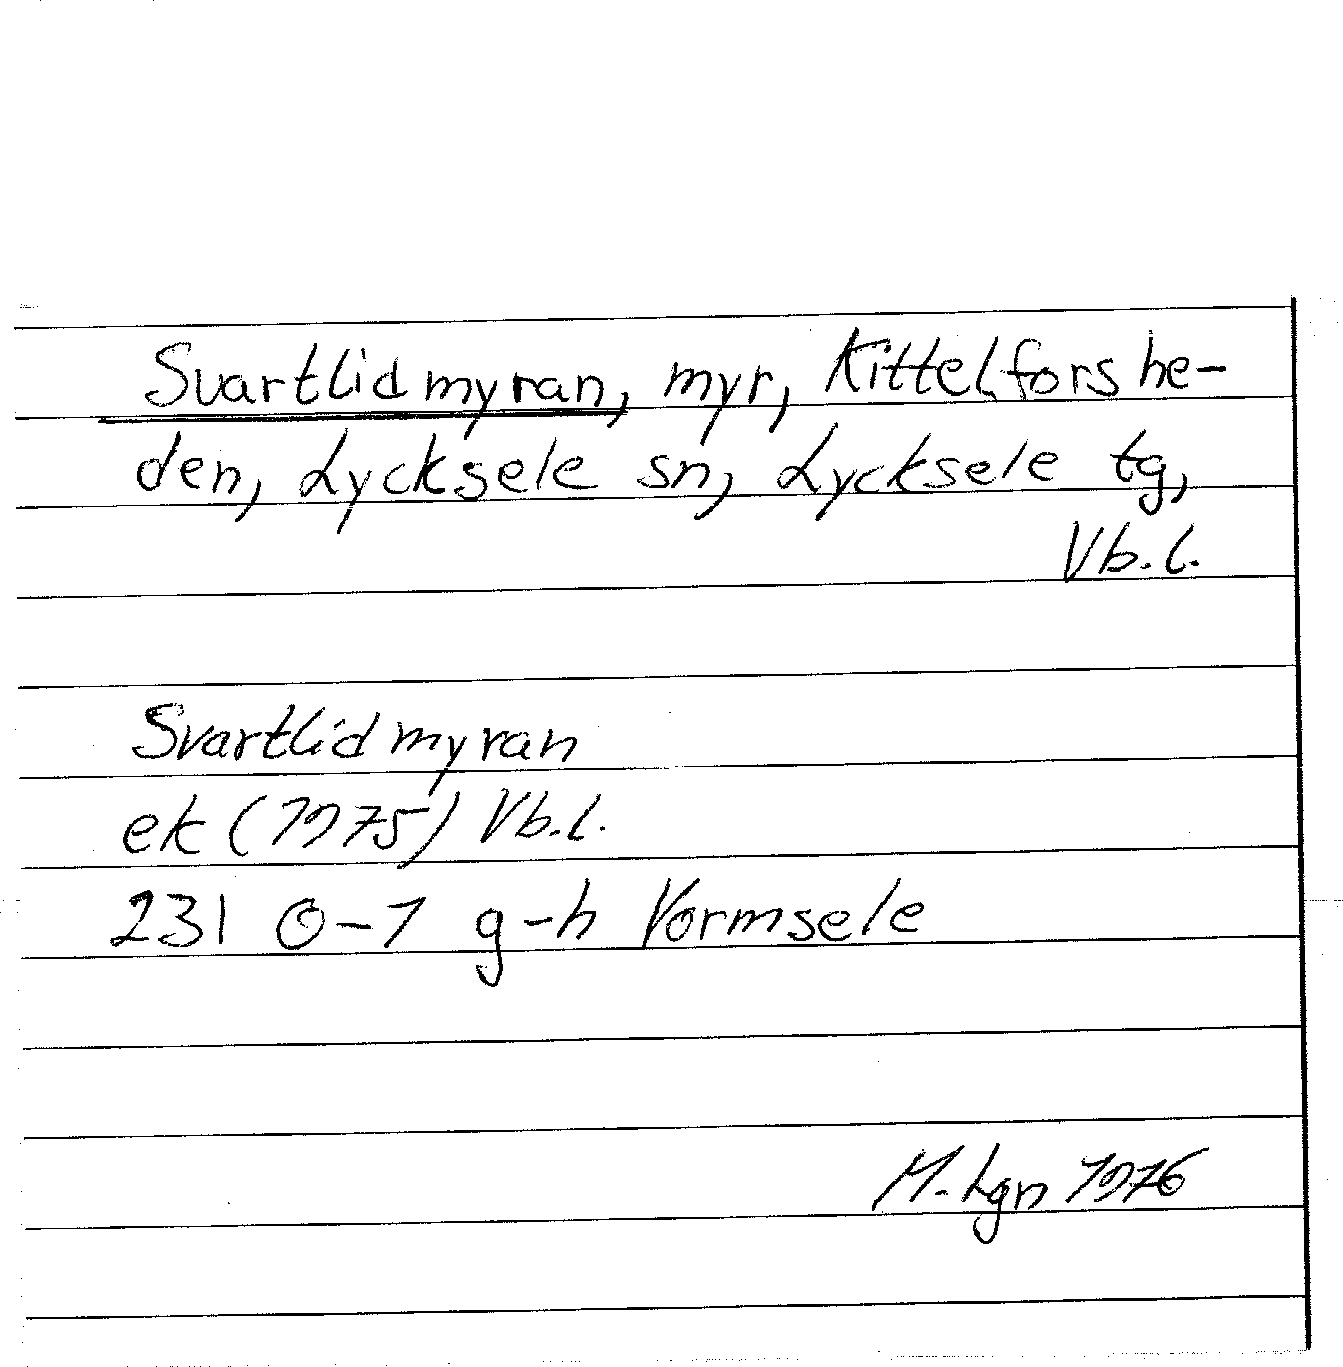 Svartlidmyran, myr, Kittelforshe-
den, Lycksele sn, Lycksele tg,
Vb.l.
Svartlidmyran
ek (1975) Vb.l.
231 0-1 g-h Vormsele
M. Lgn 1976